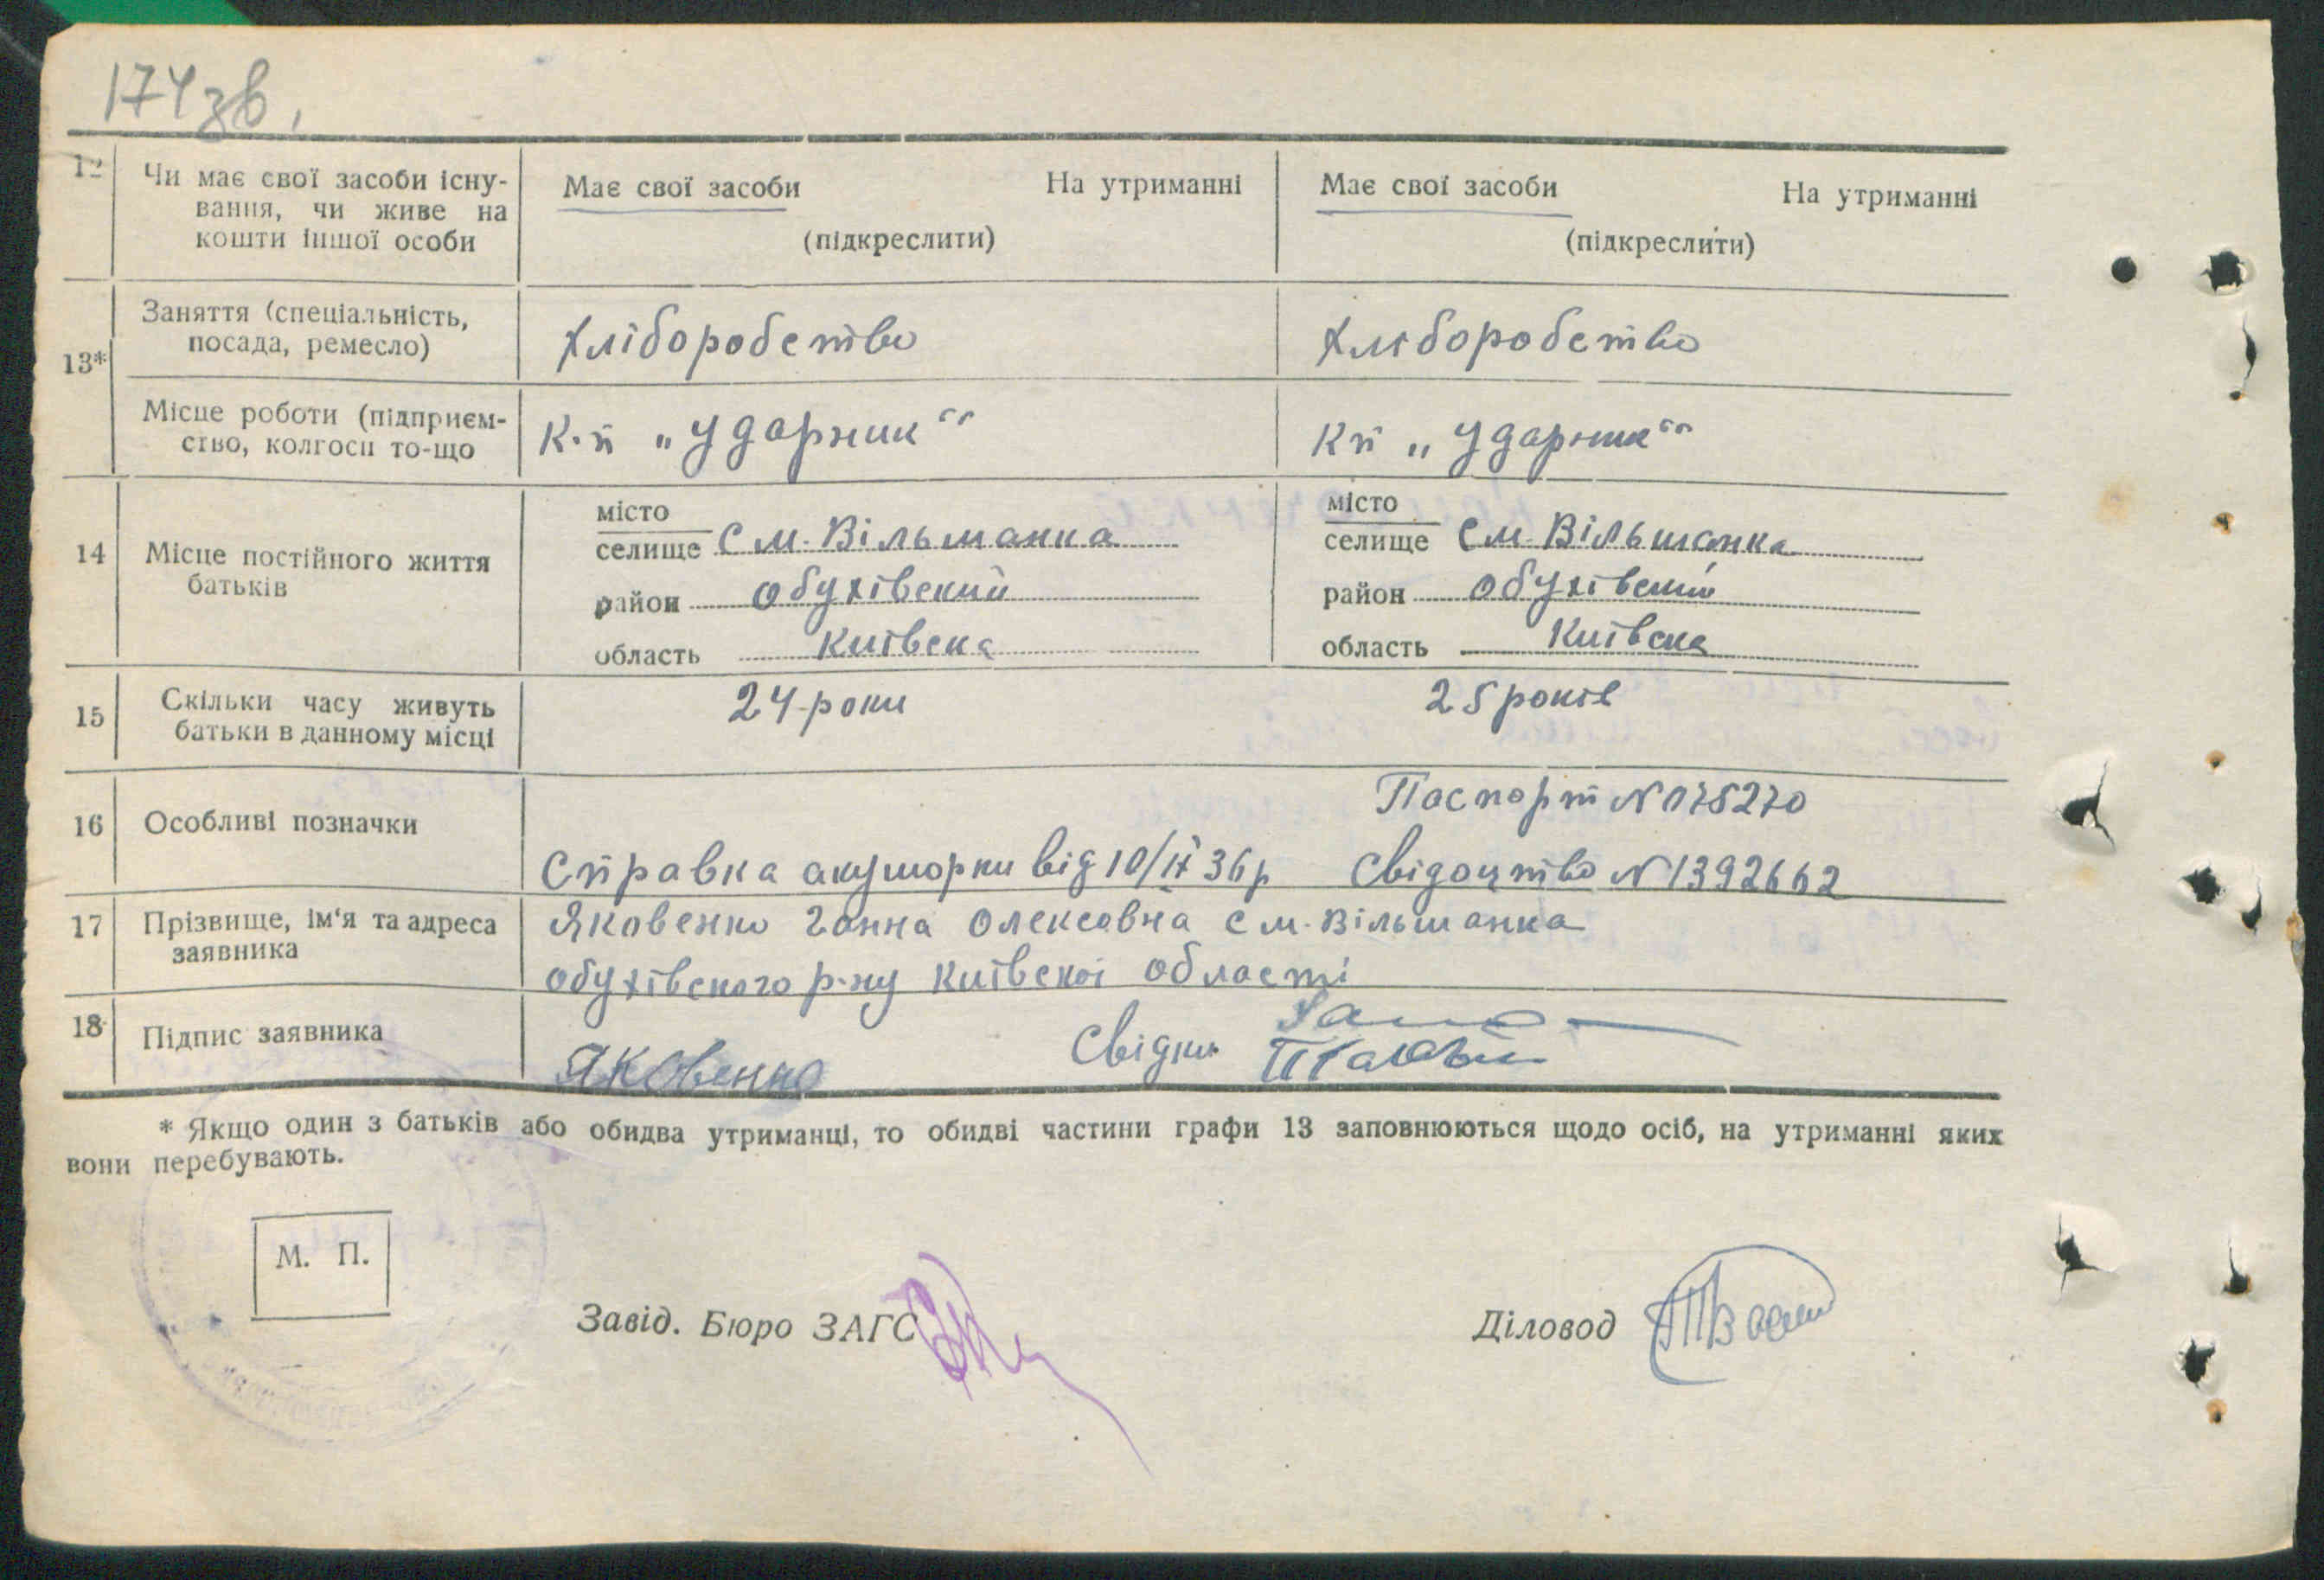 174 зв.
12 Чи має свої засоби існу- Має свої засоби На утриманні Має свої засоби На утриманні
вання, чи живе на
кошти іншої особи (підкреслити) (підкреслити)
13* Заняття (спеціальність, хліборобство хліборобство
посада, ремесло)
Місце роботи (підприєм- К-п „Ударник“ Кп „Ударник“
ство, колгосп то-що
14 Місце постійного життя батьків
місто
селище См. Вільшанка
район Обухівский
область Київска
місто
селище См. Вільшанка
район Обухівский
область Київска
15 Скільки часу живуть 24 роки 25 років
батьки в данному місці
16 Особливі позначки Паспорт N 075270
Справка акушорки від 10/ІХ 36 р Свідоцтво N 1392662
17 Прізвище, ім'я та адреса Яковенко Ганна Олексовна См. Вільшанка
заявника Обухівского р-ну Київскоі області
18 Підпис заявника Яковенко Свідки
* Якщо один з батьків або обидва утриманці, то обидві частини графи 13 заповнюються щодо осіб, на утриманні яких
вони перебувають.
М. П.
Завід. Бюро ЗАГС Діловод